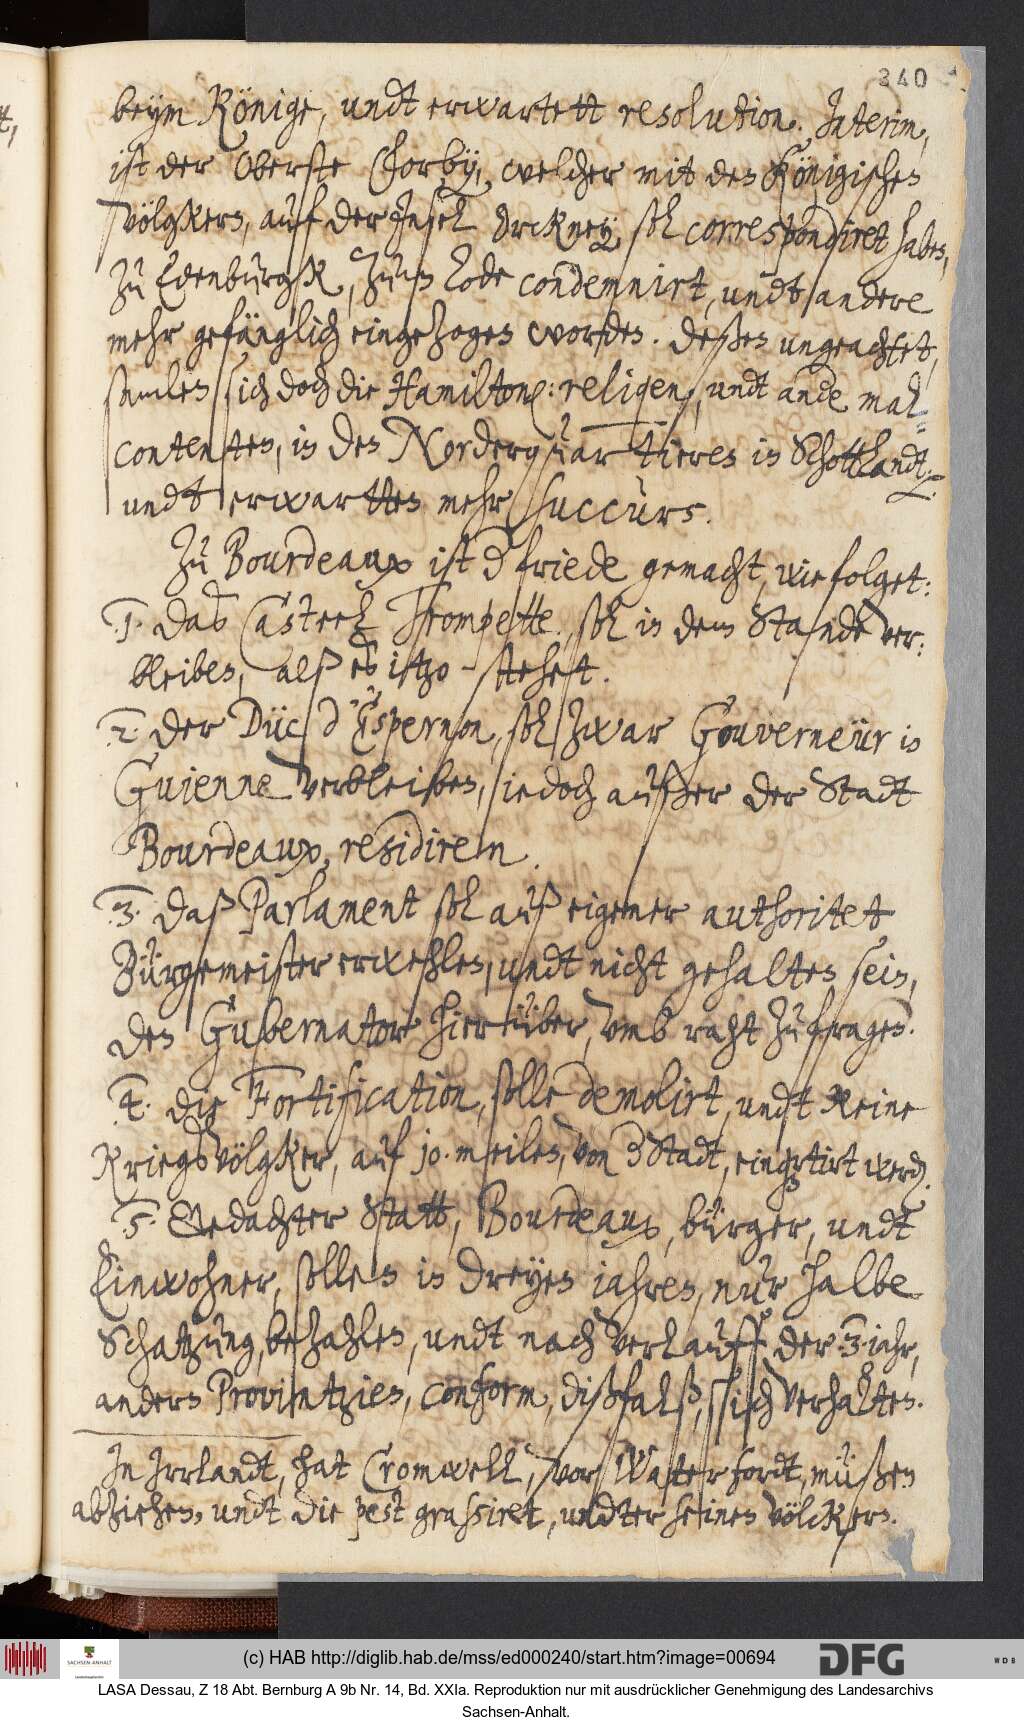 340
beym Könige, undt erwartett resolution. Interim,
ist der Oberste Chorby, welcher mit den Königischen
völgkern, auf der Insel Orckney sol correspondiret haben,
zu Edenburgk, zum Tode condemnirt, undt andere
mehr gefänglich eingezogen worden. deßen ungeachtet,
samlen sich doch die Hamilton: religen, undt ande mal-
contenten, in den Norderquartieren in Schottlandt.
undt erwartten mehr succurs.
Zu Bourdeaux ist d friede gemacht, wie folget:
.1. das Casteel Trompette, sol in dem Stande ver:
bleiben, alß es itzo stehet.
.2. der Düc d'Espernon, sol zwar Gouverneür in
Guienne verbleiben, iedoch außer der Stadt
Bourdeaux, residiren.
.3. daß Parlament sol auß eigener authoritet
Bürgemeister erwehlen, undt nicht gehalten sein,
den Gubernator hierüber, umb raht zu fragen.
.4. die Fortification, solle demolirt, undt keine
Kriegsvölgker, auf 10. meilen, von d Stadt, einqrtirt werd.
.5. Gedachter Statt, Bourdeaux, bürger, undt
Einwohner, sollen in dreyen jahren, nur halbe
Schatzung, bezahlen, undt nach verlauff der .3. iahr,
andern Provintzien, conform, dißfalß, sich verhalten.
In Irrlandt, hat Cromwell, vor Waterfordt, müßen
abziehen, undt die pest grassiret, undter seinen völckern.
(c) HAB http://diglib.hab.de/mss/ed000240/start.htm?image=00694
SACHSEN-ANHALT
DFG
WDB
LASA Dessau, Z 18 Abt. Bernburg A 9b Nr. 14, Bd. XXIa. Reproduktion nur mit ausdrücklicher Genehmigung des Landesarchivs
Sachsen-Anhalt.